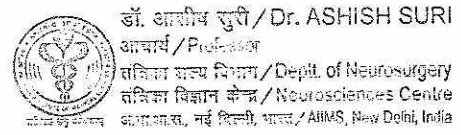 डॉ. आशीष सूरी / Dr. ASHISH SURI
आचार्य / Professor
तंत्रिका शल्य विभाग / Deptt. of Neurosurgery
तंत्रिका विज्ञान केन्द्र / Neurosciences Centre
नई दिल्ली, भारत / AIIMS, New Delhi, India